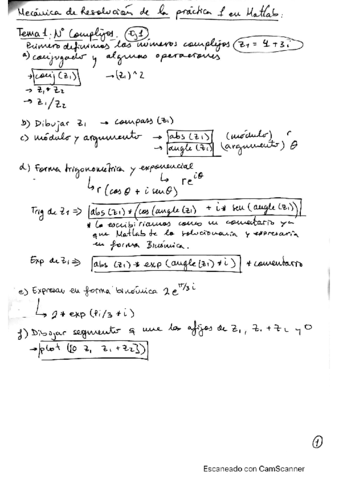 Mecánica de Resolución de la práctica 1 en Matlab.
Tema 1: Nº Complejos. Ej 1
Primero definimos los números complejos z1 = 4+3i
a) conjugador y algunas operaciones
→ conj(z1) → (z1)^2
→ z1 * z2
→ z1/z2
b) Dibujar z1 → compass(z1)
c) módulo y argumento → abs(z1) (módulo) r
→ angle(z1) (argumento) θ
d) Forma trigonométrica y exponencial
r(cosθ + i senθ) re^iθ
Trig de z1 ⇒ abs(z1)*(cos(angle(z1) + i* sen(angle(z1))
* lo escribiríamos como un comentario ya
que Matlab te lo solucionaría y expresaría
en forma Binómica.
Exp de z1 ⇒ abs(z1)*exp(angle(z1)*i) * comentario
e) Expresar en forma binómica 2e^π/3i
→ 2*exp(pi/3*i)
f) Dibujar segmento q une los afijos de z1, z1+z2 y 0
→ plot([0 z1 z1+z2])
1
Escaneado con CamScanner